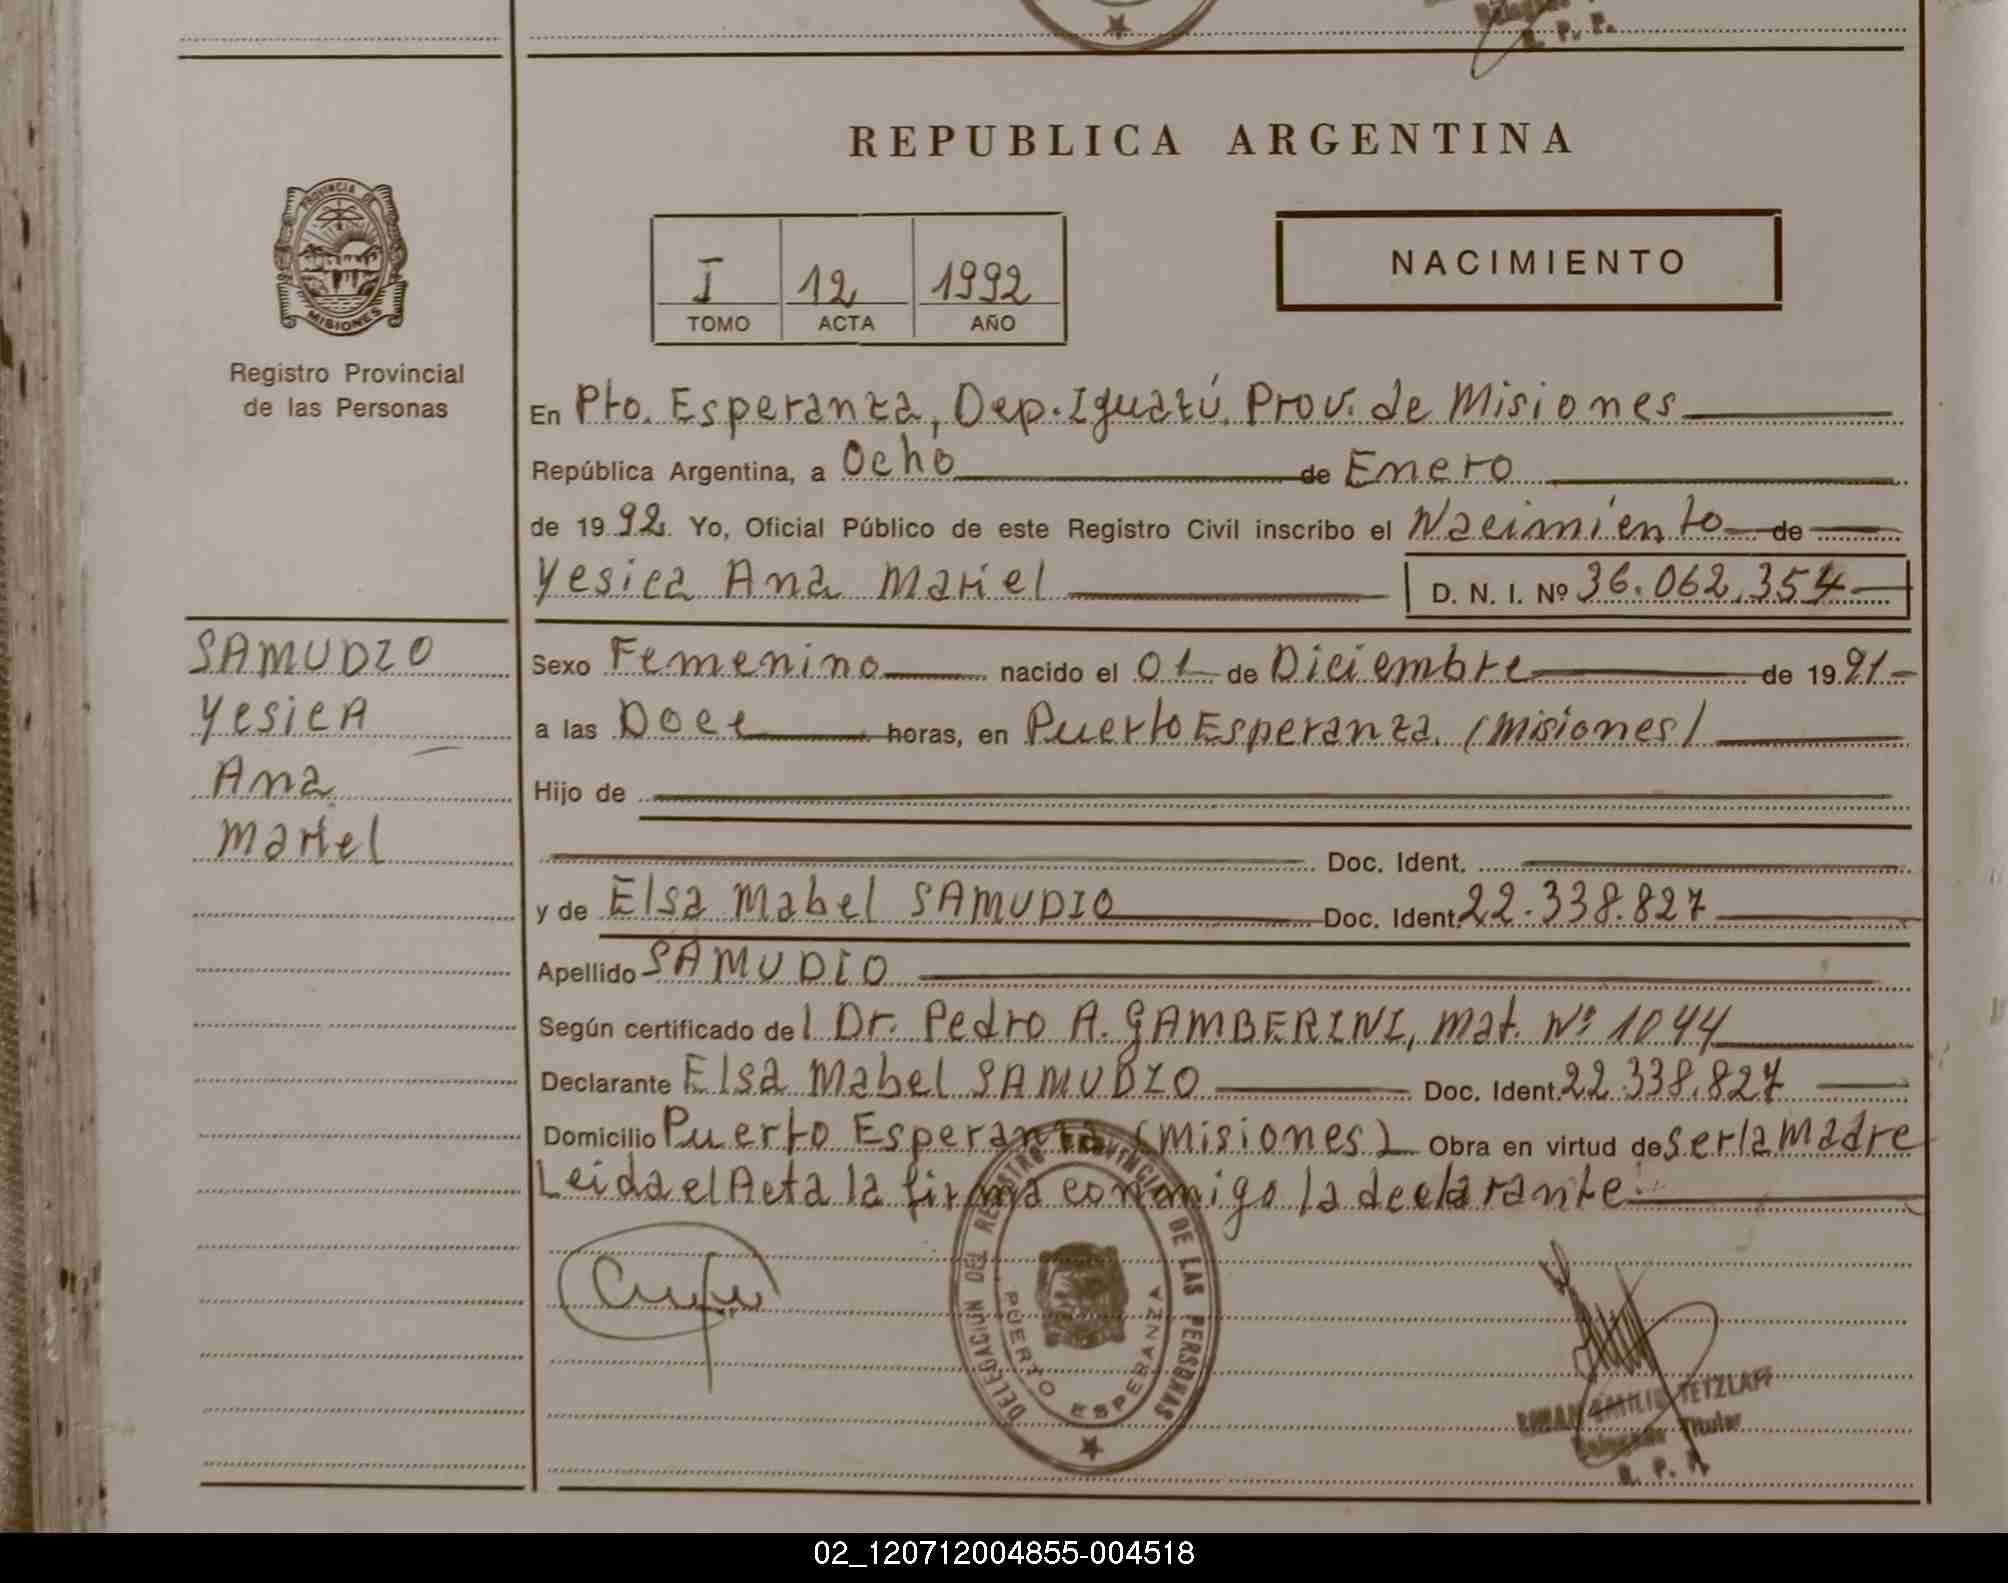 R. P. P.
REPUBLICA ARGENTINA
PROVINCIA DE
MISIONES
Registro Provincial
de las Personas
I 12 1992
TOMO ACTA AÑO
NACIMIENTO
En Pto. Esperanza, Dep. Iguazú, Prov. de Misiones
República Argentina, a Ocho de Enero
de 1992. Yo, Oficial Público de este Registro Civil inscribo el Nacimiento de
Yesica Ana Mariel D. N. I. Nº 36.062.354
SAMUDIO
Yesica
Ana
Mariel
Sexo Femenino nacido el 01 de Diciembre de 1991
a las Doce horas, en Puerto Esperanza (Misiones)
Hijo de
Doc. Ident.
y de Elsa Mabel SAMUDIO Doc. Ident. 22.338.827
Apellido SAMUDIO
Según certificado del Dr. Pedro A. GAMBERINI, Mat. Nº 1044
Declarante Elsa Mabel SAMUDIO Doc. Ident. 22.338.827
Domicilio Puerto Esperanza (Misiones) Obra en virtud de ser la madre
Leida el Acta la firma conmigo la declarante
DELEGACION DEL REGISTRO PROVINCIAL DE LAS PERSONAS
PUERTO ESPERANZA
TETZLAFF
Titular
R. P. P.
02_120712004855-004518